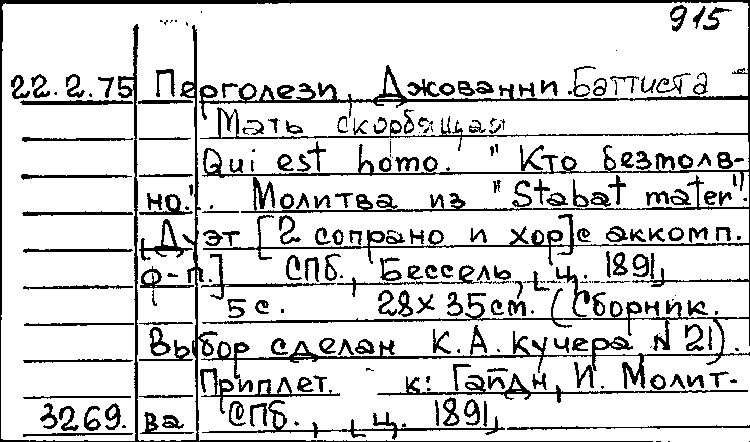 915
22.2.75 Перголези, Джованни Баттиста
Мать скорбящая
Qui est homo. "Кто безмолв-
но". Молитва из "Stabat mater".
[Дуэт [2 сопрано и хор] с аккомп.
ф-п.] СПб., Бессель, [ц. 1891]
5 с. 28х35 cm. (Сборник.
Выбор сделан К.А. Кучера, № 21).
Приплет. к: Гайдн, И. Молит-
3269. ва СПб., [ц. 1891]